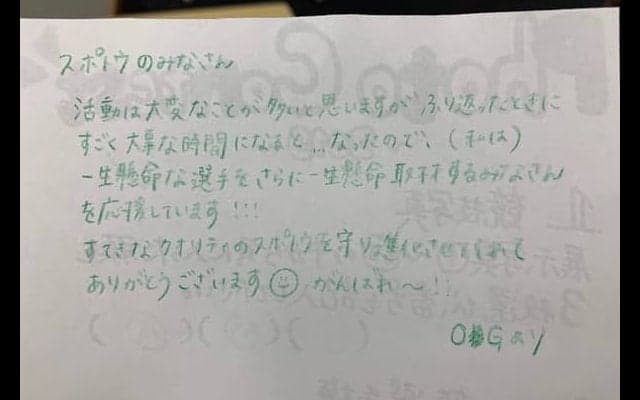 スポトウのみなさん
活動は大変なことが多いと思いますが ふり返ったときに
すごく大事な時間になると…なったので、(私は)
一生懸命な選手をさらに一生懸命取材するみなさん
を応援しています!!!
すてきなクオリティのスポトウを守り進化させてくれて
ありがとうございます☺ がんばれ〜!!
OGより